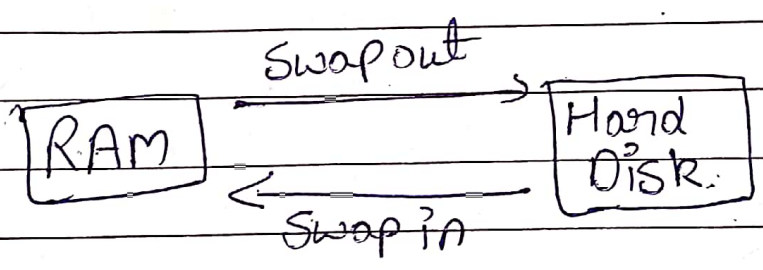 Swap out
RAM
Hard
Disk.
Swap in